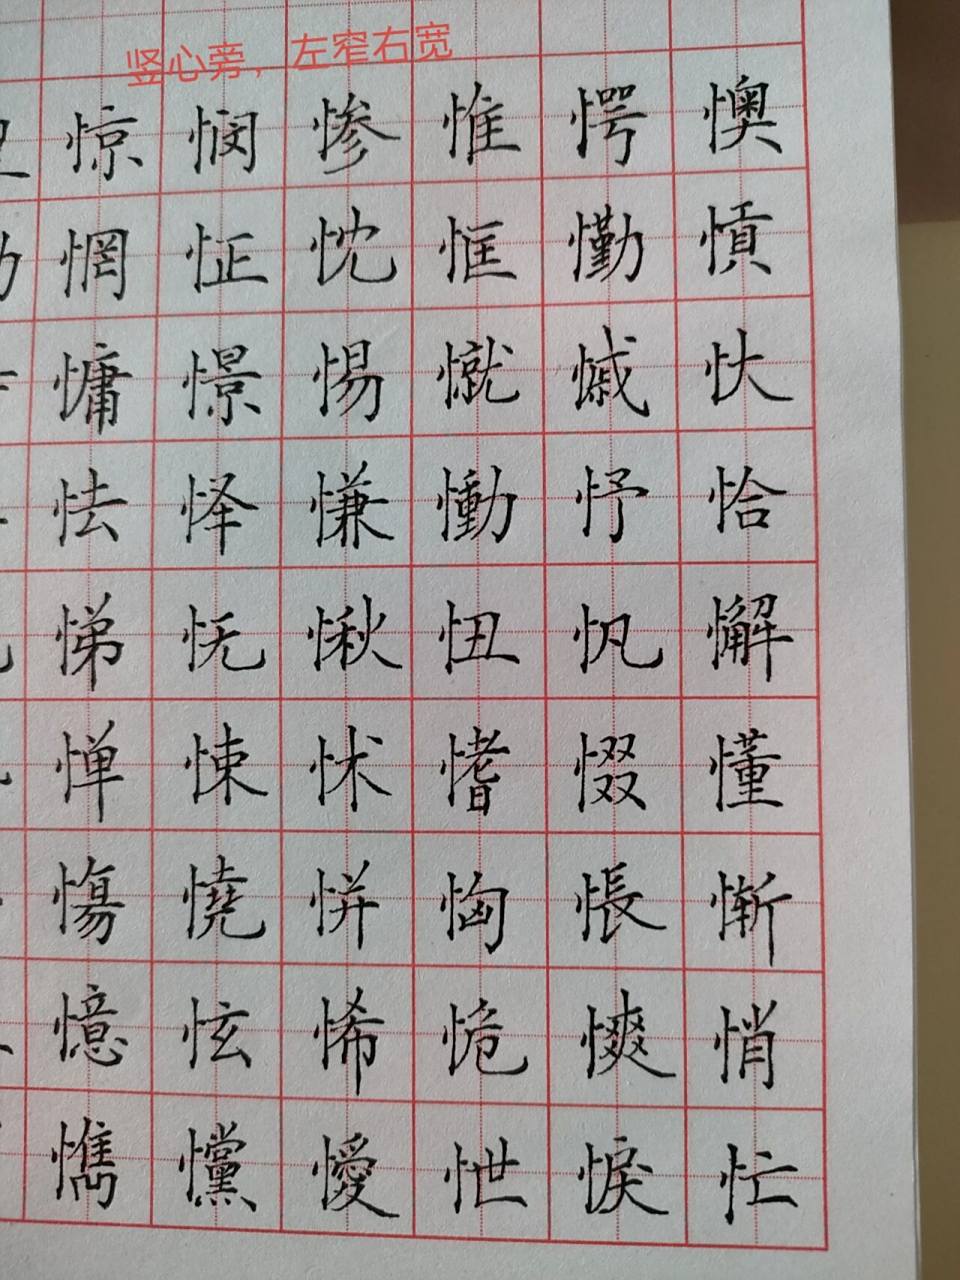 竖心旁，左窄右宽
惊 悯 惨 惟 愕 懊
惘 怔 忱 恇 懄 愩
慵 憬 惕 憱 慽 忕
怯 怿 慊 慟 忬 恰
悌 怃 愀 忸 忛 懈
惮 悚 怵 愭 惙 懂
慯 憢 恲 恟 悵 惭
憶 怰 悕 恑 慡 悄
懏 戃 懓 怈 悷 忙